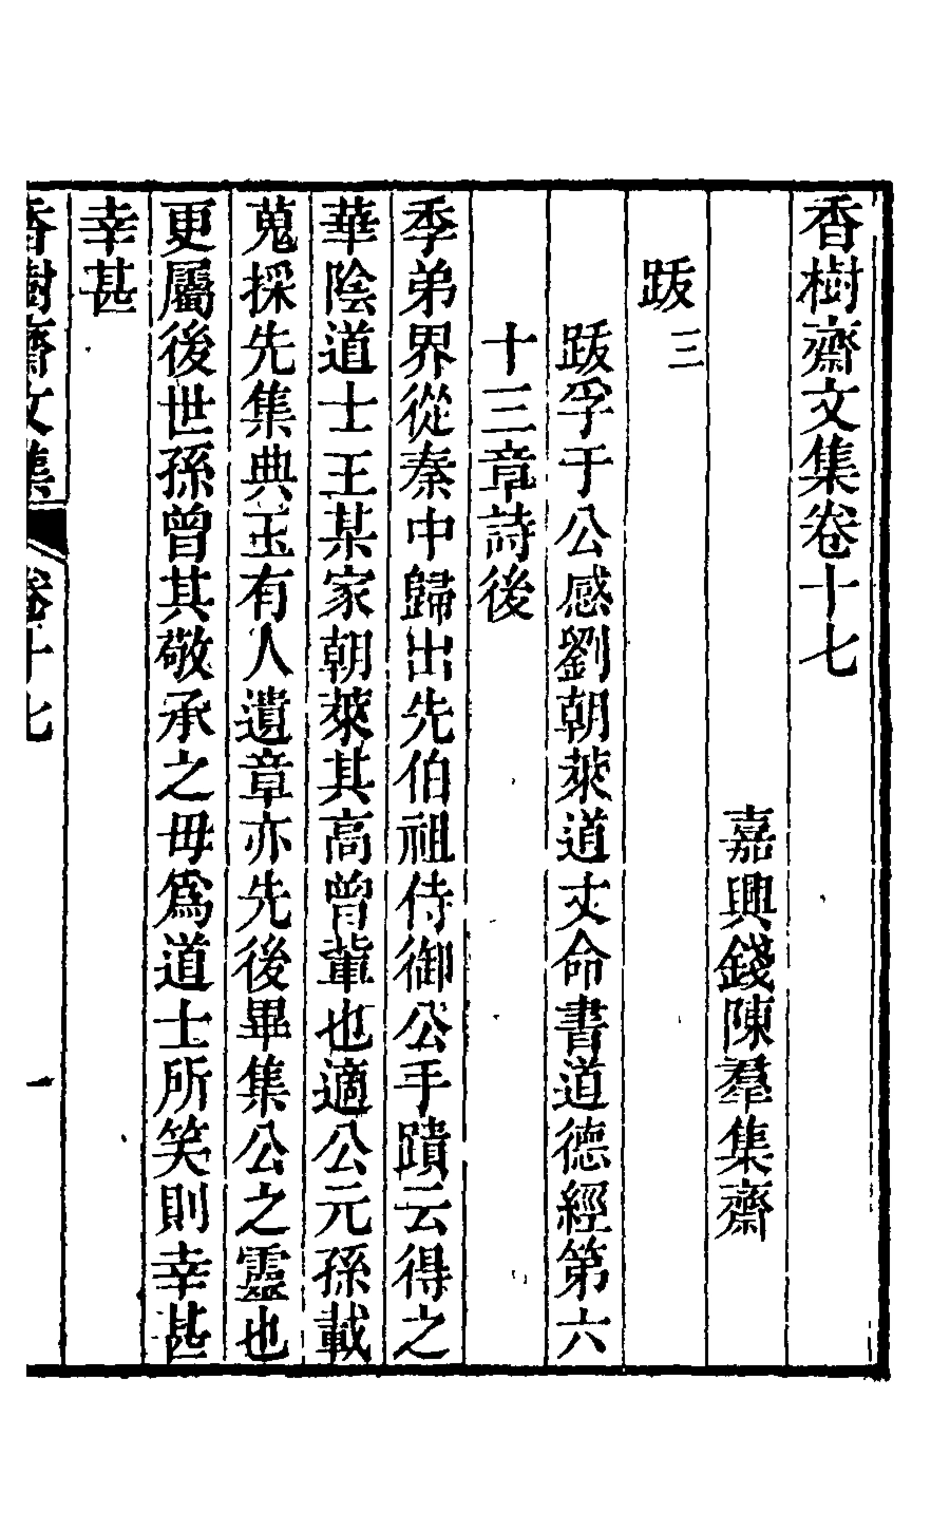 香樹齋文集卷十七
嘉興錢陳羣集齋
跋三
跋孚于公感劉朝萊道丈命書道德經第六
十三章詩後
季弟界從秦中歸出先伯祖侍御公手蹟云得之
華陰道士王某家朝萊其高曾輩也適公元孫載
蒐採先集典玉有人遺章亦先後畢集公之靈也
更屬後世孫曾其敬承之毋爲道士所笑則幸甚
幸甚
香樹齋文集 卷十七 一